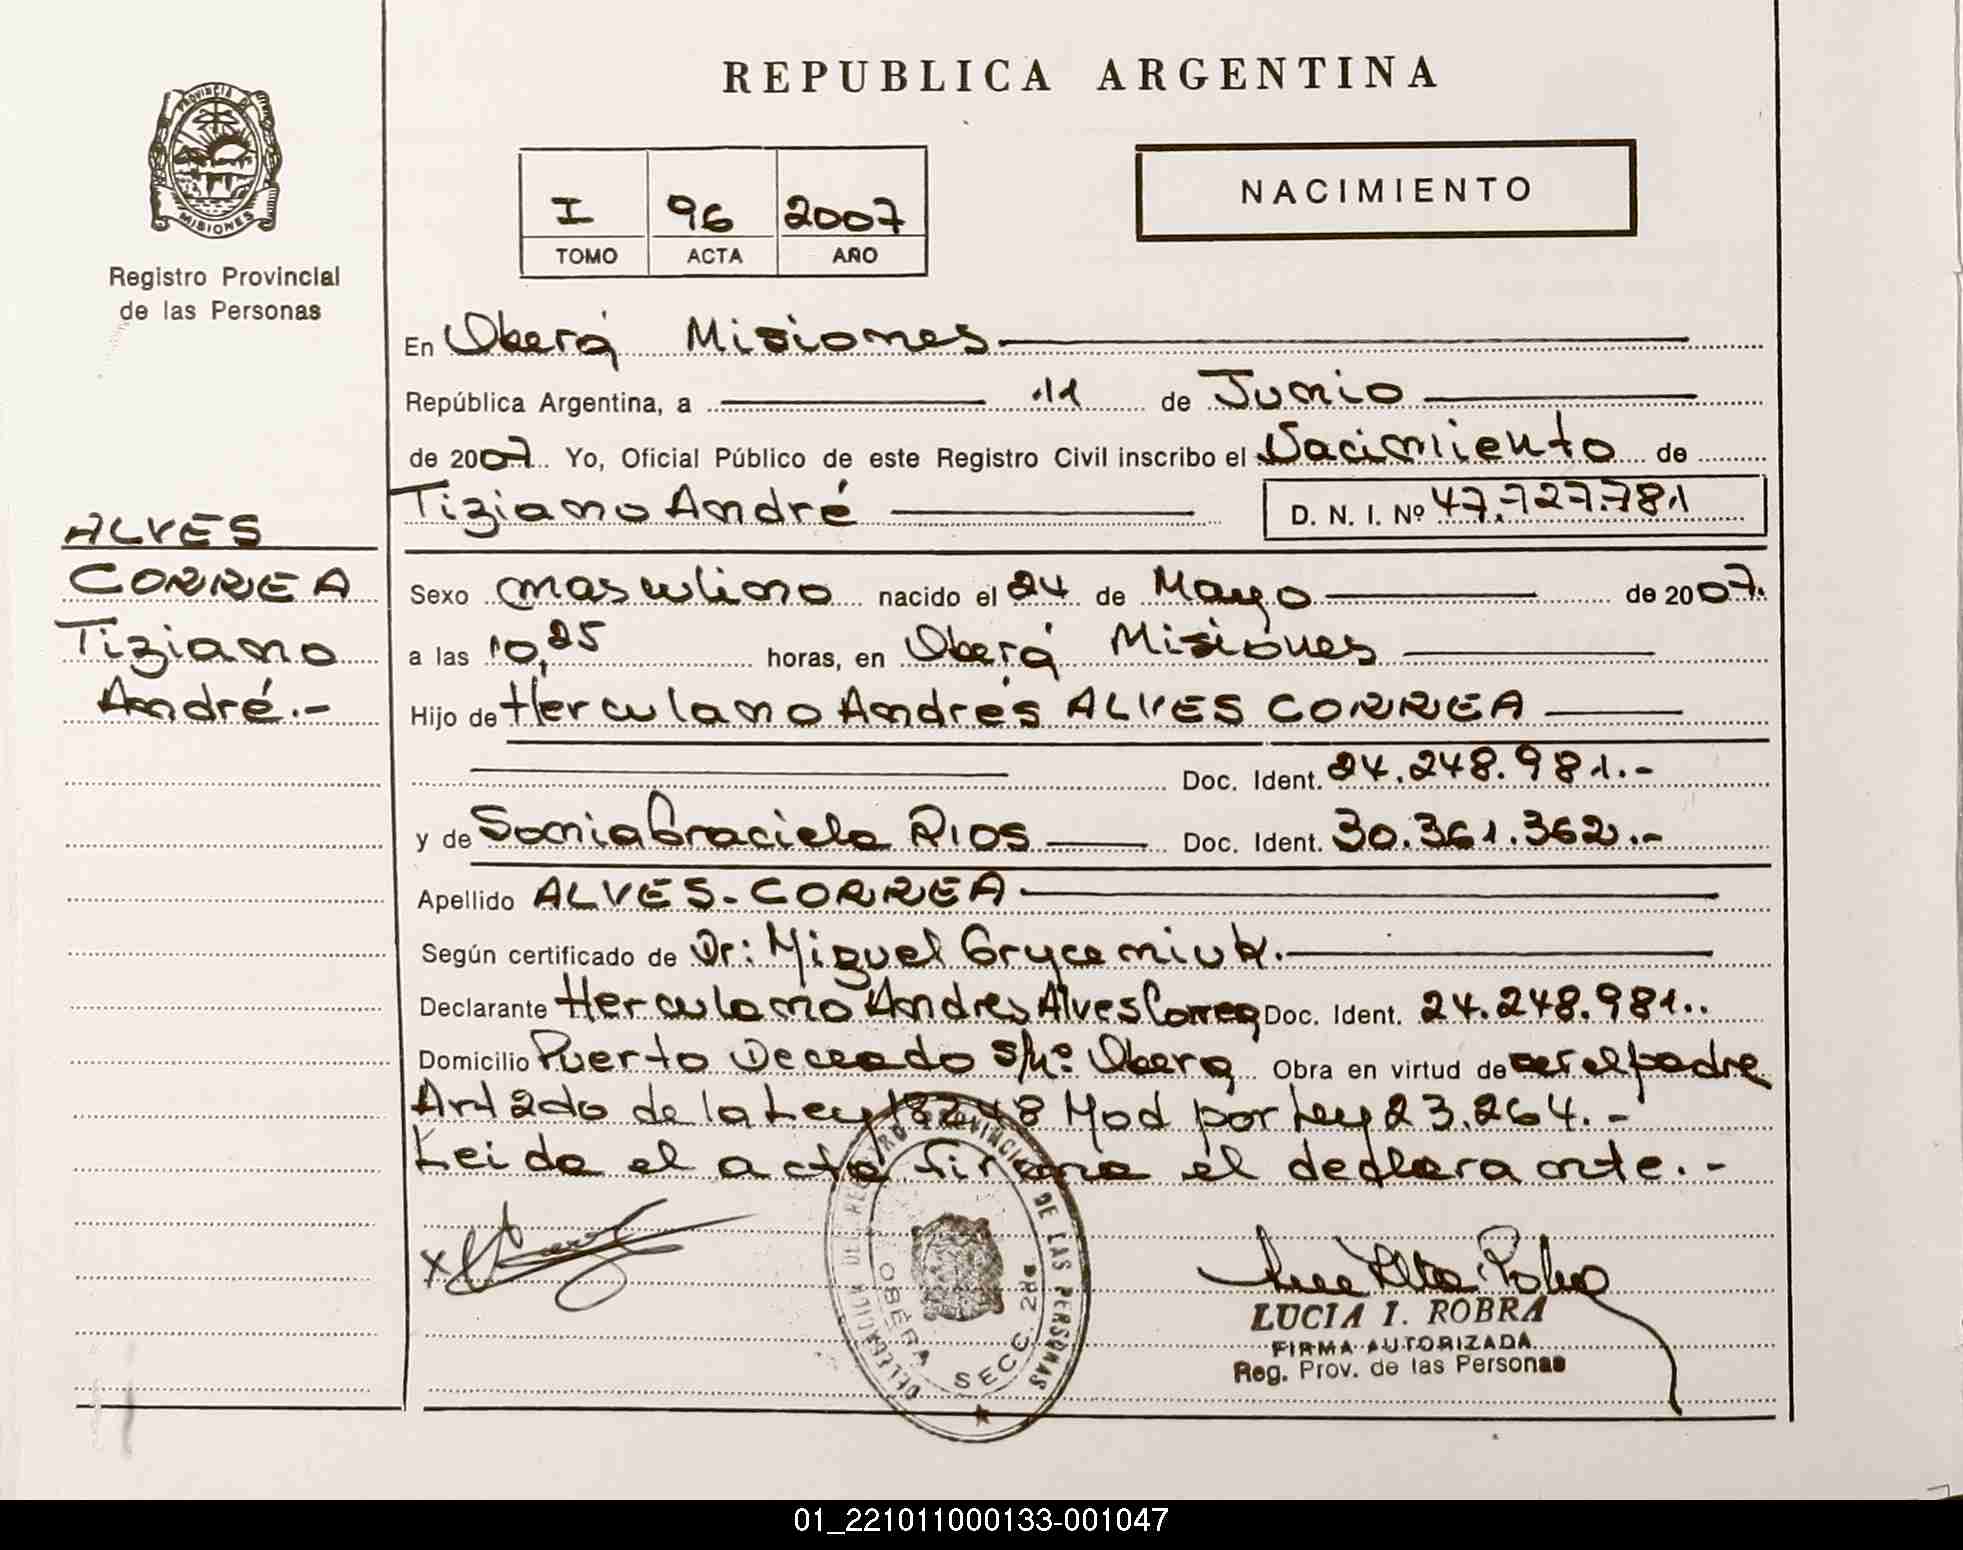 REPUBLICA ARGENTINA
PROVINCIA DE
MISIONES
Registro Provincial
de las Personas
I 96 2007
TOMO ACTA AÑO
NACIMIENTO
En Oberá Misiones
República Argentina, a 11 de Junio
de 2007 Yo, Oficial Público de este Registro Civil inscribo el Nacimiento de
Tiziano André D. N. I. Nº 47.727.781
ALVES
CORREA
Tiziano
André.-
Sexo masculino nacido el 24 de Mayo de 2007.
a las 10,25 horas, en Oberá Misiones
Hijo de Herculano Andrés ALVES CORREA
Doc. Ident. 24.248.981.-
y de Sonia Graciela RIOS Doc. Ident. 30.361.362.-
Apellido ALVES-CORREA
Según certificado de Dr: Miguel Gryceniuk.
Declarante Herculano Andres Alves Correa Doc. Ident. 24.248.981..
Domicilio Puerto Deceado s/nº Oberá Obra en virtud de ser el padre
Art 2do de la Ley 18248 Mod por Ley 23.264.-
Leida el acta firma el declarante.-
DELEGACION DEL REGISTRO PROVINCIAL DE LAS PERSONAS
OBERA SECC. 2da
LUCIA I. ROBRA
FIRMA AUTORIZADA
Reg. Prov. de las Personas
01_221011000133-001047